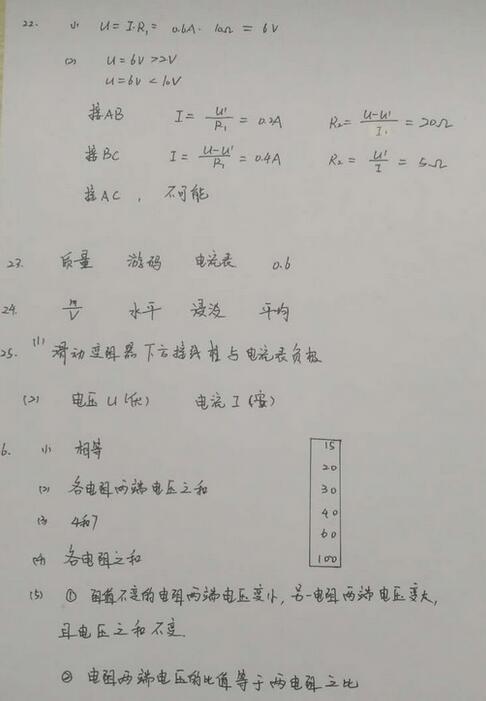 22. (1) U = I·R₁ = 0.6A · 10Ω = 6V
(2) U = 6V > 2V
U = 6V < 10V
接AB I = U'/R₁ = 0.2A R₂ = (U-U')/I = 20Ω
接BC I = (U-U')/R₁ = 0.4A R₂ = U'/I = 5Ω
接AC, 不可能
23. 质量 游码 电流表 0.6
24. m/V 水平 浸没 平均
25. (1) 滑动变阻器下方接线柱与电流表负极
(2) 电压U(伏) 电流I(安)
6. (1) 相等
(2) 各电阻两端电压之和
(3) 4和7
(4) 各电阻之和
15
20
30
40
60
100
(5) ① 阻值不变的电阻两端电压变小, 另一电阻两端电压变大,
且电压之和不变.
② 电阻两端电压的比值等于两电阻之比